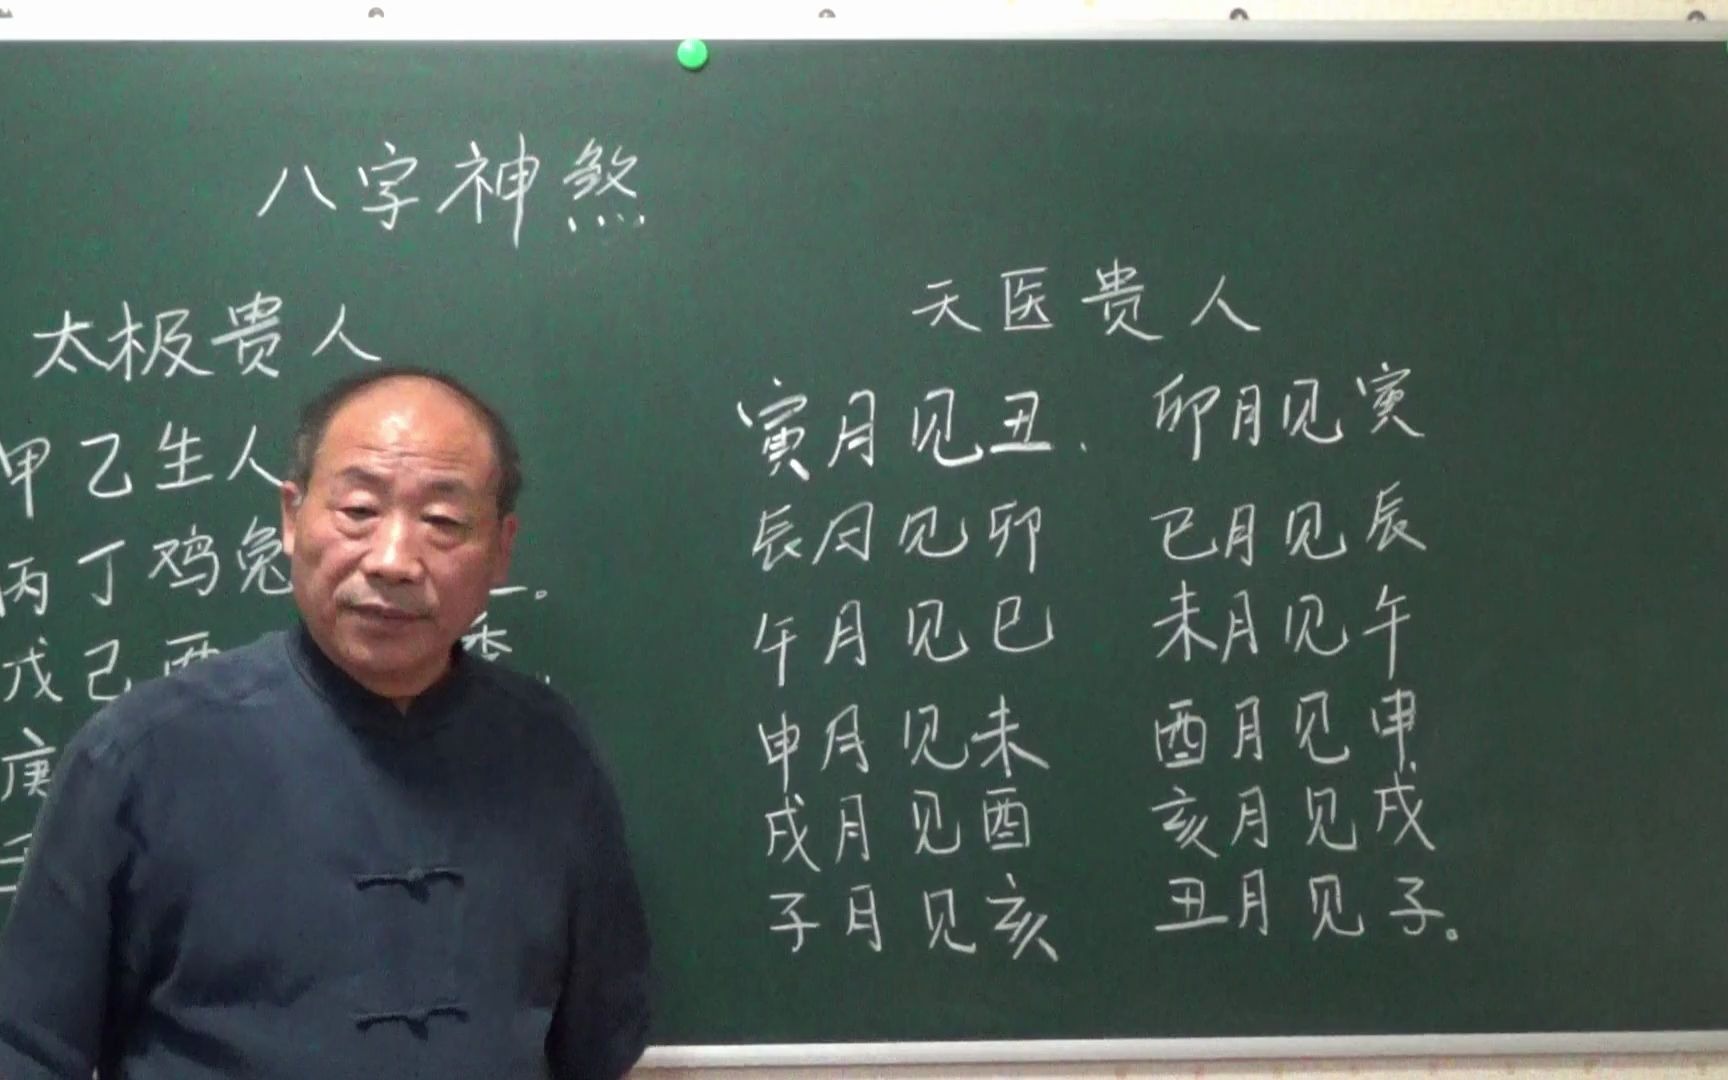 八字神煞
太极贵人
甲乙生人
丙丁鸡兔
戊己
庚
天医贵人
寅月见丑. 卯月见寅
辰月见卯 巳月见辰
午月见巳 未月见午
申月见未 酉月见申
戌月见酉 亥月见戌
子月见亥 丑月见子。